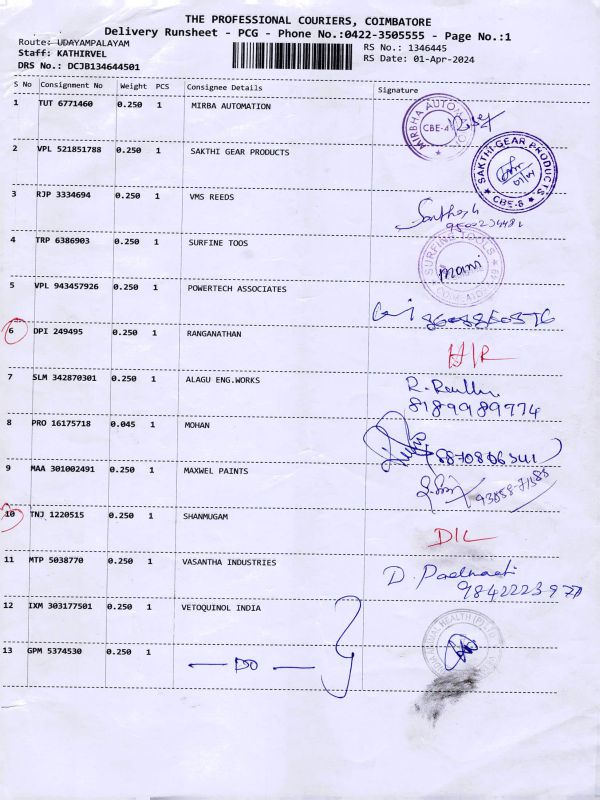 THE PROFESSIONAL COURIERS, COIMBATORE
Delivery Runsheet - PCG - Phone No.:0422-3505555 - Page No.:1
Route: UDAYAMPALAYAM
RS No.: 1346445
Staff: KATHIRVEL
RS Date: 01-Apr-2024
DRS No.: DCJB134644501
S No Consignment No Weight PCS Consignee Details Signature
1 TUT 6771460 0.250 1 MIRBA AUTOMATION MIRBHA AUTOM CBE-4
2 VPL 521851788 0.250 1 SAKTHI GEAR PRODUCTS SAKTHI GEAR PRODUCTS CBE-6
3 RJP 3334694 0.250 1 VMS REEDS Santhosh
4 TRP 6386903 0.250 1 SURFINE TOOS SURFINE TOOLS mani
5 VPL 943457926 0.250 1 POWERTECH ASSOCIATES
6 DPI 249495 0.250 1 RANGANATHAN H/R
7 SLM 342870301 0.250 1 ALAGU ENG.WORKS R.
8189989774
8 PRO 16175718 0.045 1 MOHAN 8870806341
9 MAA 301002491 0.250 1 MAXWEL PAINTS 93858-71585
10 TNJ 1220515 0.250 1 SHANMUGAM D/L
11 MTP 5038770 0.250 1 VASANTHA INDUSTRIES D.
12 IXM 303177501 0.250 1 VETOQUINOL INDIA ANIMAL HEALTH (P)
13 GPM 5374530 0.250 1 DO